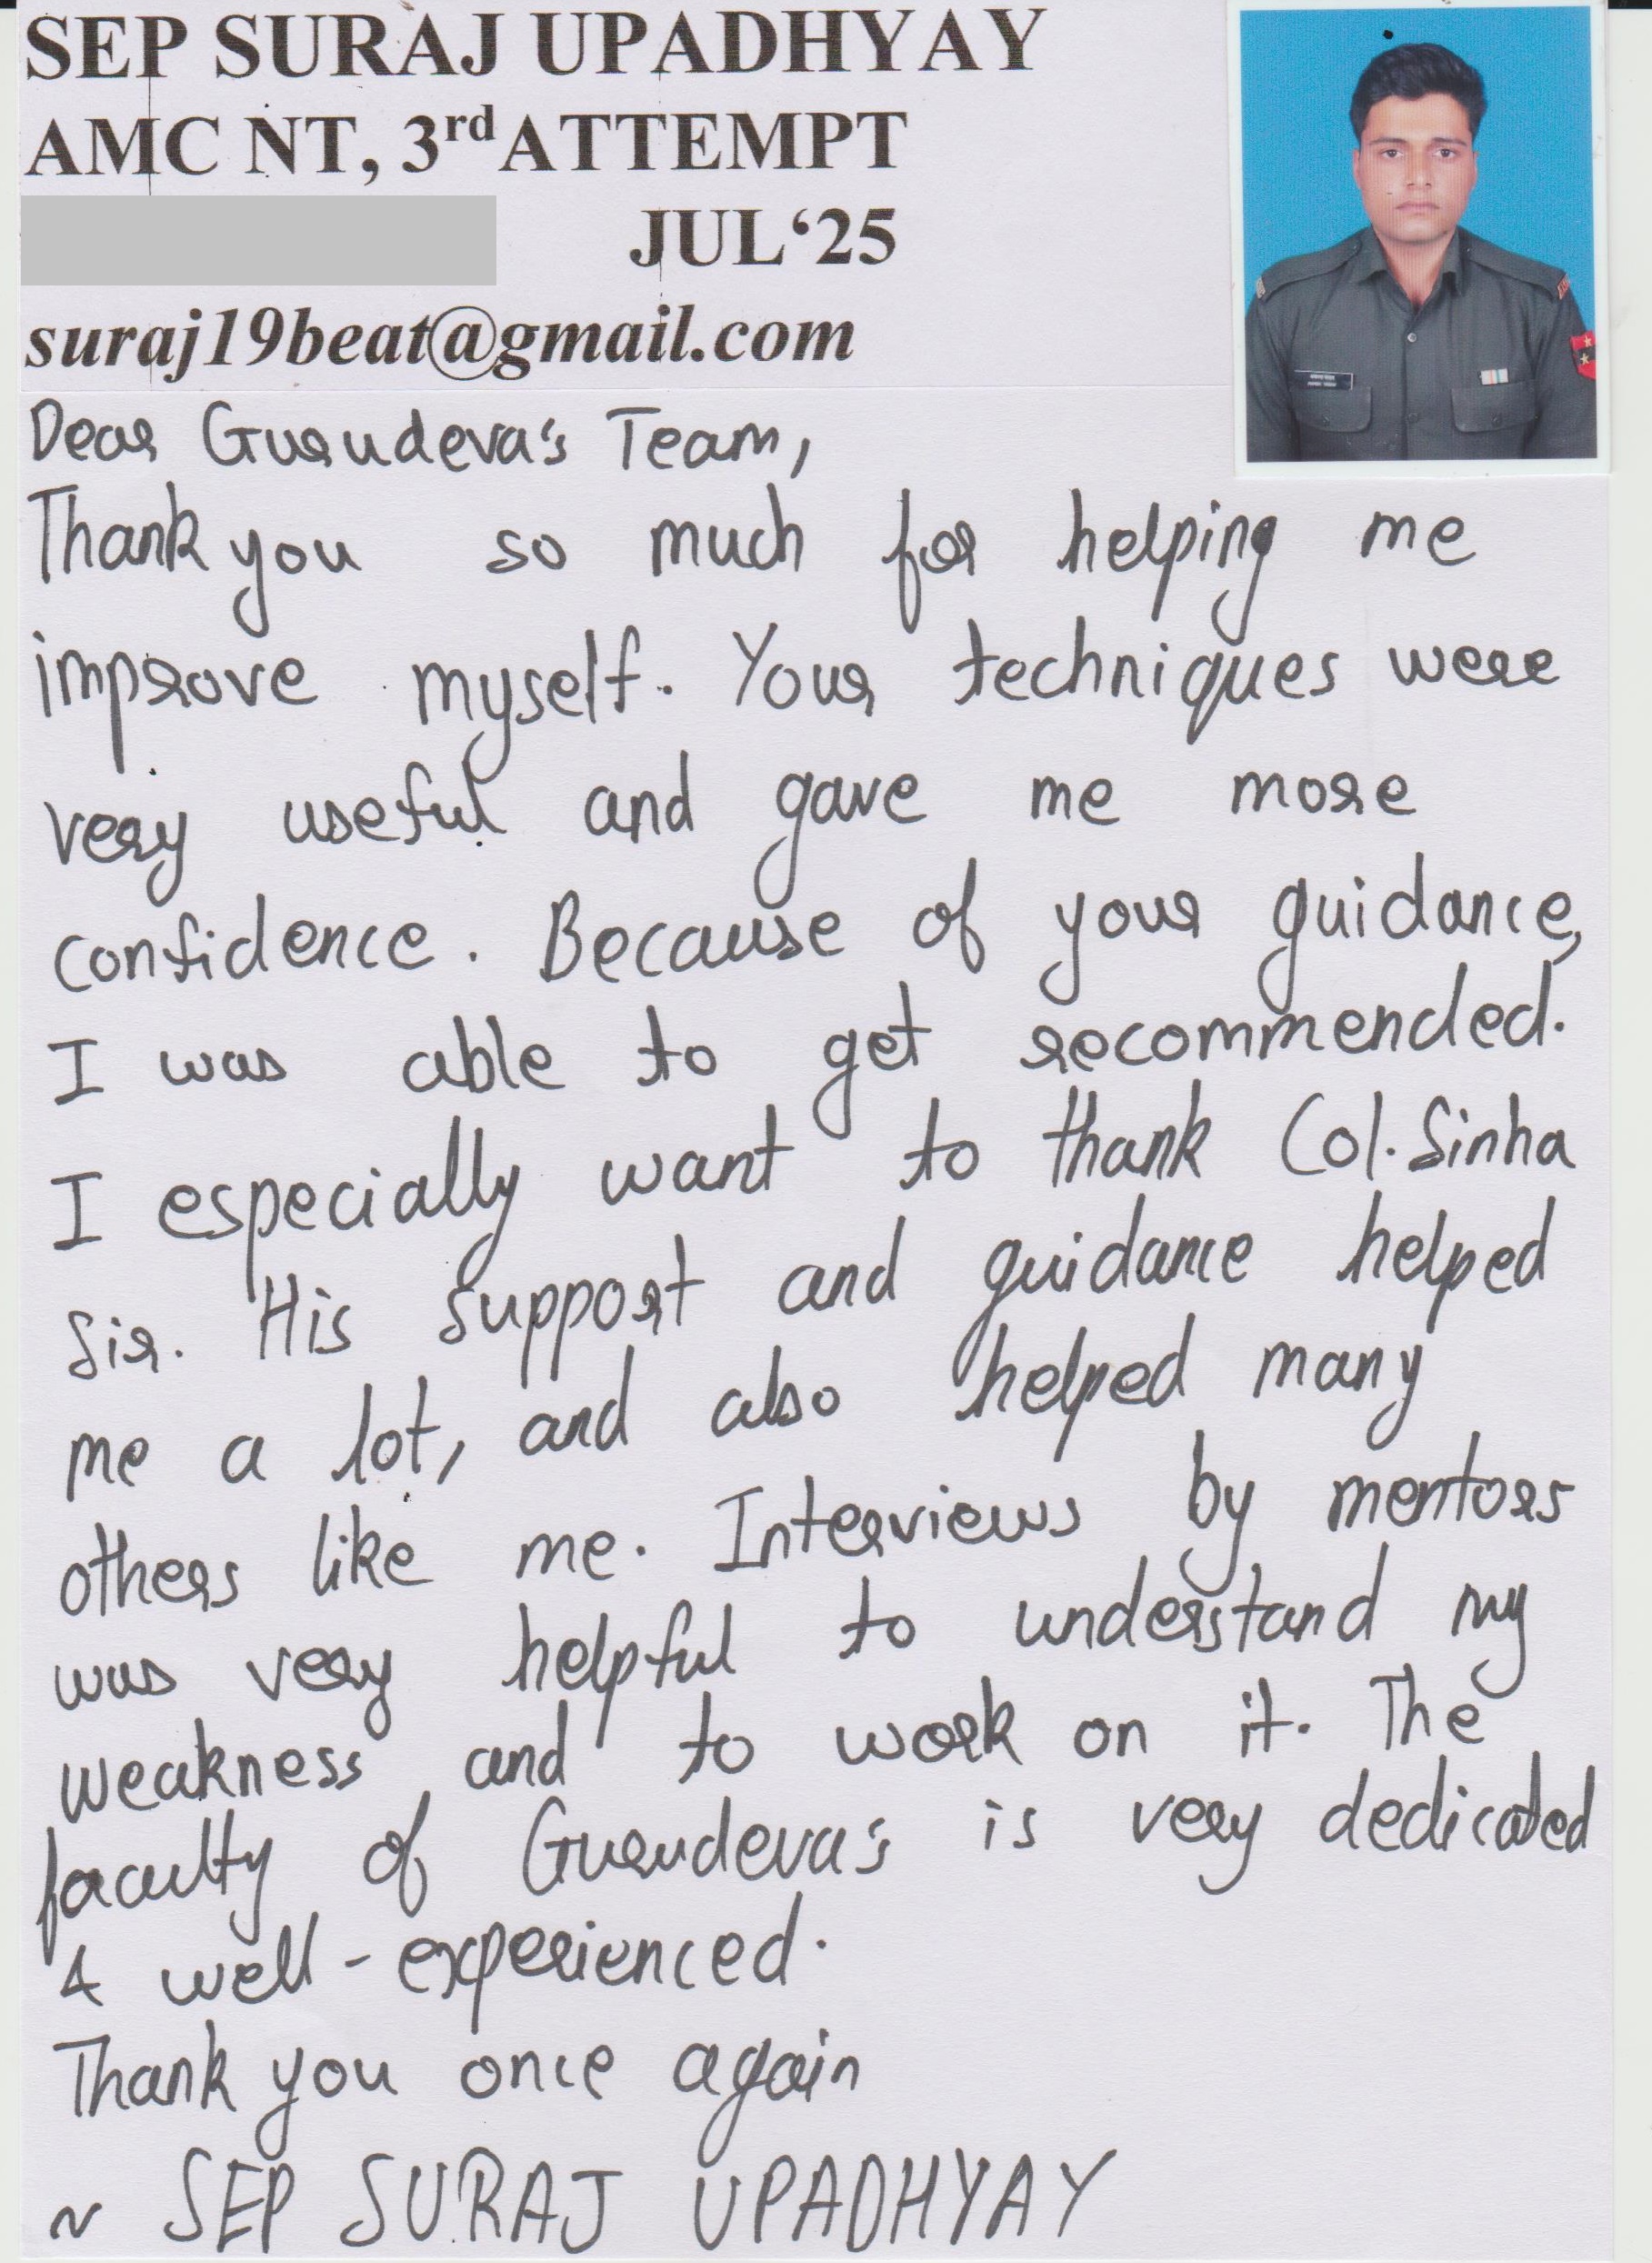 SEP SURAJ UPADHYAY
AMC NT, 3rd ATTEMPT
JUL‘25
suraj19beat@gmail.com
Dear Gurudeva's Team,
Thank you so much for helping me
improve myself. Your techniques were
very useful and gave me more
confidence. Because of your guidance,
I was able to get recommended.
I especially want to thank Col. Sinha
Sir. His support and guidance helped
me a lot, and also helped many
others like me. Interviews by mentors
was very helpful to understand my
weakness and to work on it. The
faculty of Gurudeva's is very dedicated
& well-experienced.
Thank you once again
~ SEP SURAJ UPADHYAY